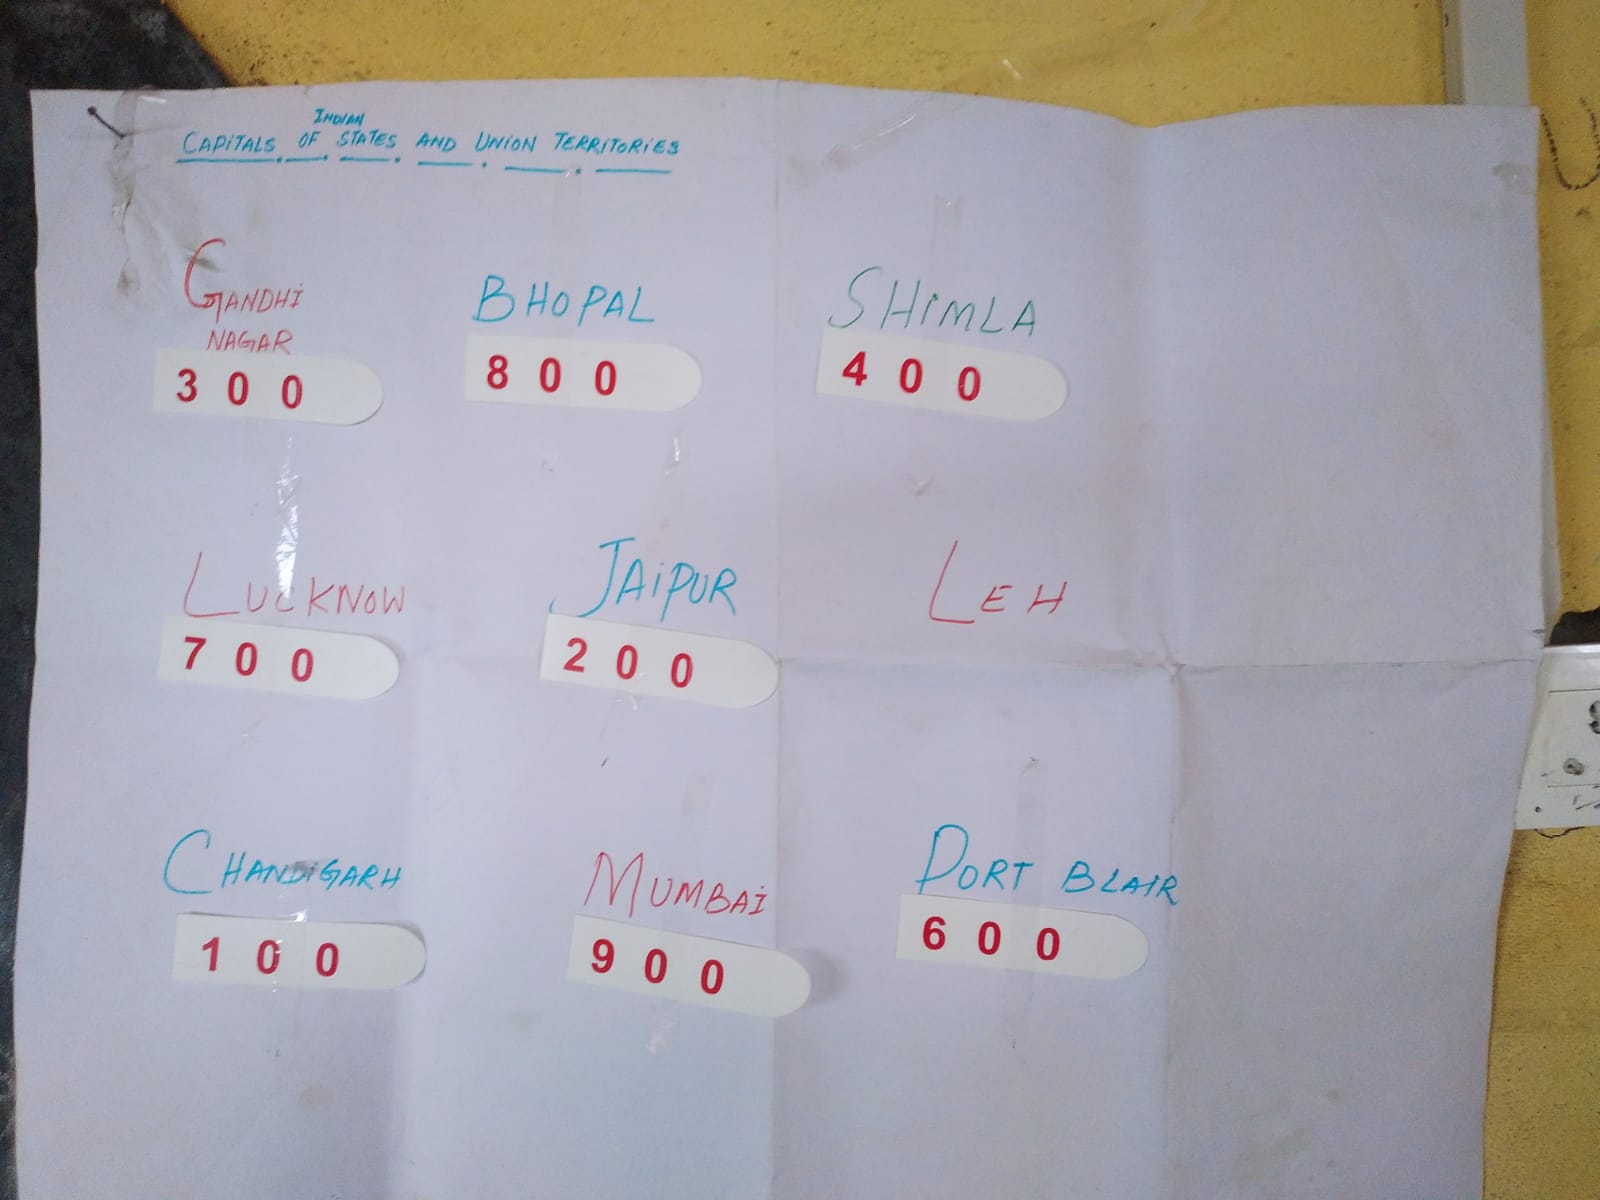 INDIAN
CAPITALS OF STATES AND UNION TERRITORIES
GANDHI
NAGAR
300
BHOPAL
800
SHIMLA
400
LUCKNOW
700
JAIPUR
200
LEH
CHANDIGARH
100
MUMBAI
900
PORT BLAIR
600